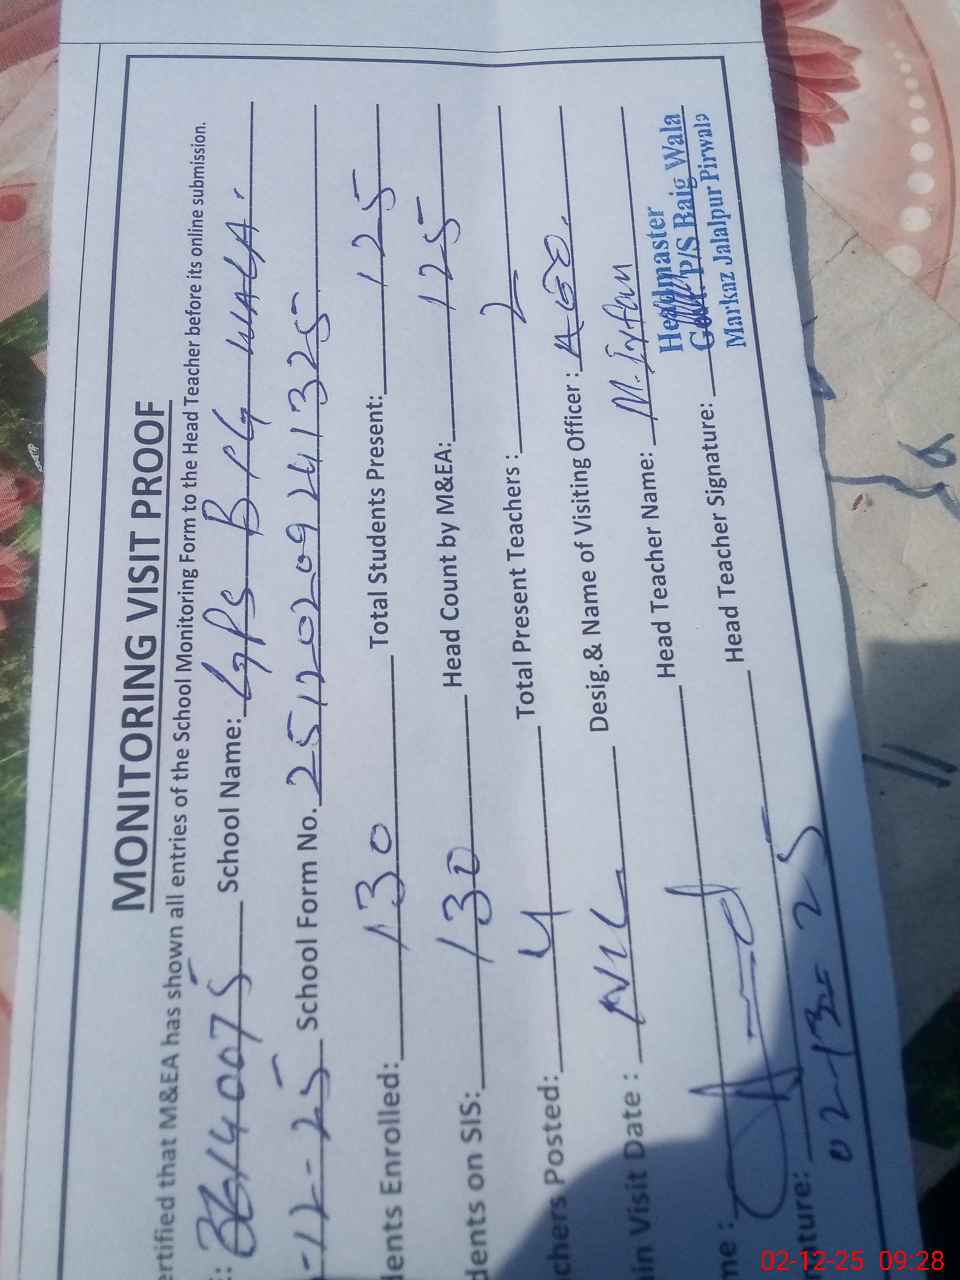 MONITORING VISIT PROOF
ertified that M&EA has shown all entries of the School Monitoring Form to the Head Teacher before its online submission.
: 36140075 School Name: GPS BAIG WALA.
-12-25 School Form No. 2512020924 1325
dents Enrolled: 130 Total Students Present: 125
dents on SIS: 130 Head Count by M&EA: 125
chers Posted: 4 Total Present Teachers: 2
ain Visit Date: NIL Desig.& Name of Visiting Officer: AEO.
me: Head Teacher Name: M. Irfan
ture: 02-12-25 Head Teacher Signature:
Headmaster
Govt. P/S Baig Wala
Markaz Jalalpur Pirwala
02-12-25 09:28